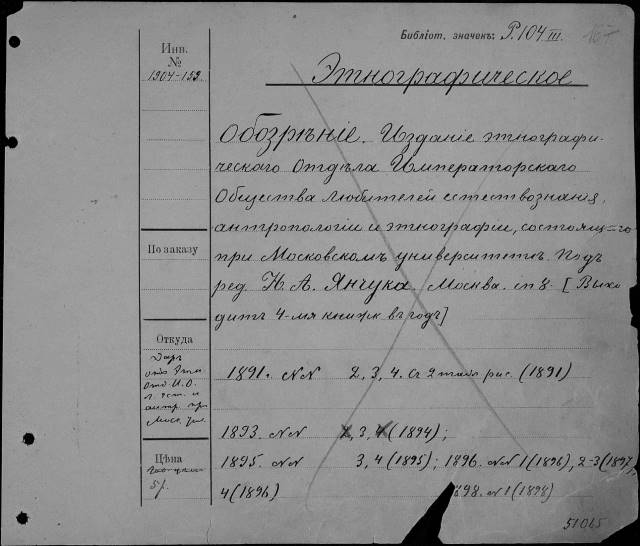 Библіот. значекъ: Р.104 III.
Инв.
№
1904-159
Этнографическое
Обозрѣніе. Изданіе этнографи-
ческаго Отдѣла Императорскаго
Общества Любителей естествознанія,
антропологіи и этнографіи, состоящ=го
при Московскомъ университетѣ. Подъ
ред. Н. А. Янчука. Москва. in 8. [Выхо
дитъ 4-мя книжк въ годъ]
По заказу
Откуда
Даръ
Цѣна
5 р.
1891. NN 2, 3, 4. Съ 2 табл рис. (1891)
1893. NN 2, 3, 4 (1894);
1895. NN 3, 4 (1895); 1896. NN 1 (1896), 2-3 (1897),
4 (1896) 1898. N 1 (1898)
51065